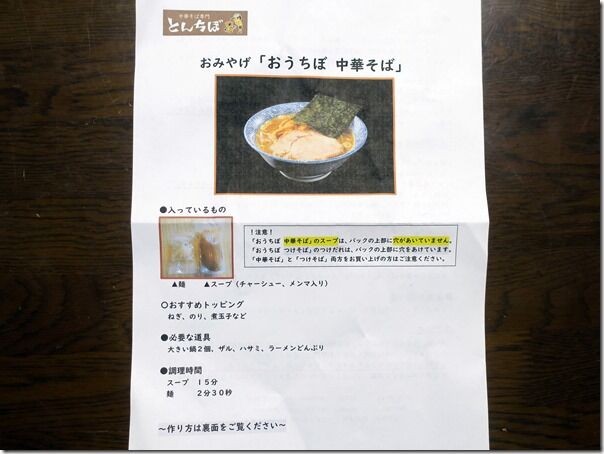 中華そば専門
とんちぼ
おみやげ「おうちぼ 中華そば」
●入っているもの
！注意！
「おうちぼ 中華そば」のスープは、パックの上部に穴があいていません。
「おうちぼ つけそば」のつけだれは、パックの上部に穴をあけています。
「中華そば」と「つけそば」両方をお買い上げの方はご注意ください。
▲麺 ▲スープ（チャーシュー、メンマ入り）
○おすすめトッピング
ねぎ、のり、煮玉子など
●必要な道具
大きい鍋２個、ザル、ハサミ、ラーメンどんぶり
●調理時間
スープ １５分
麺 ２分３０秒
～作り方は裏面をご覧ください～